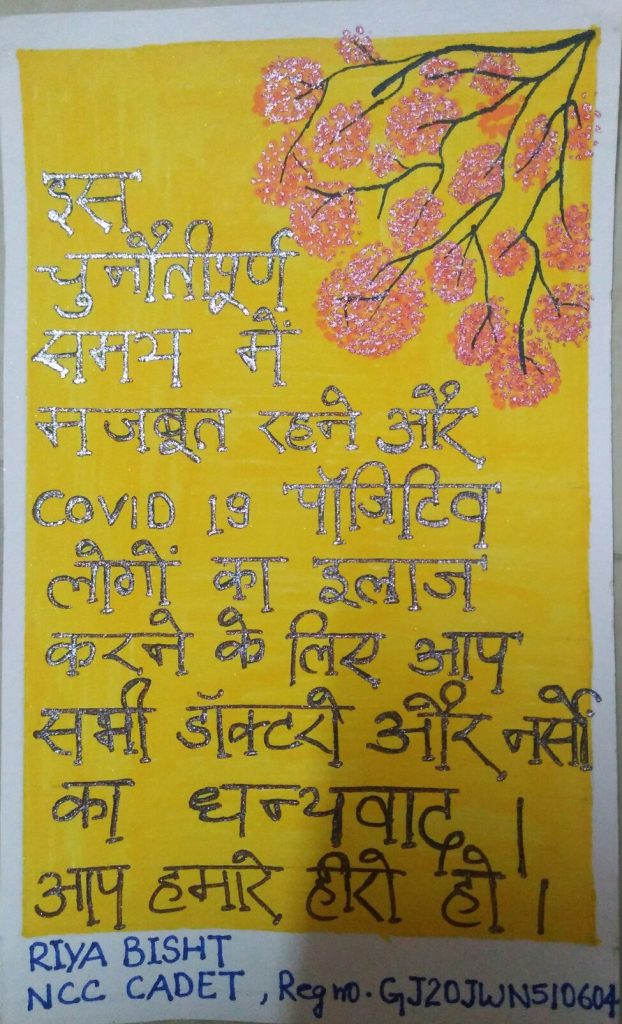 इस
चुनौतीपूर्ण
समय में
मजबूत रहने और
COVID 19 पॉजिटिव
लोगों का इलाज
करने के लिए आप
सभी डॉक्टरो और नर्सो
का धन्यवाद ।
आप हमारे हीरो हो ।
RIYA BISHT
NCC CADET , Reg no. GJ20JWN510604